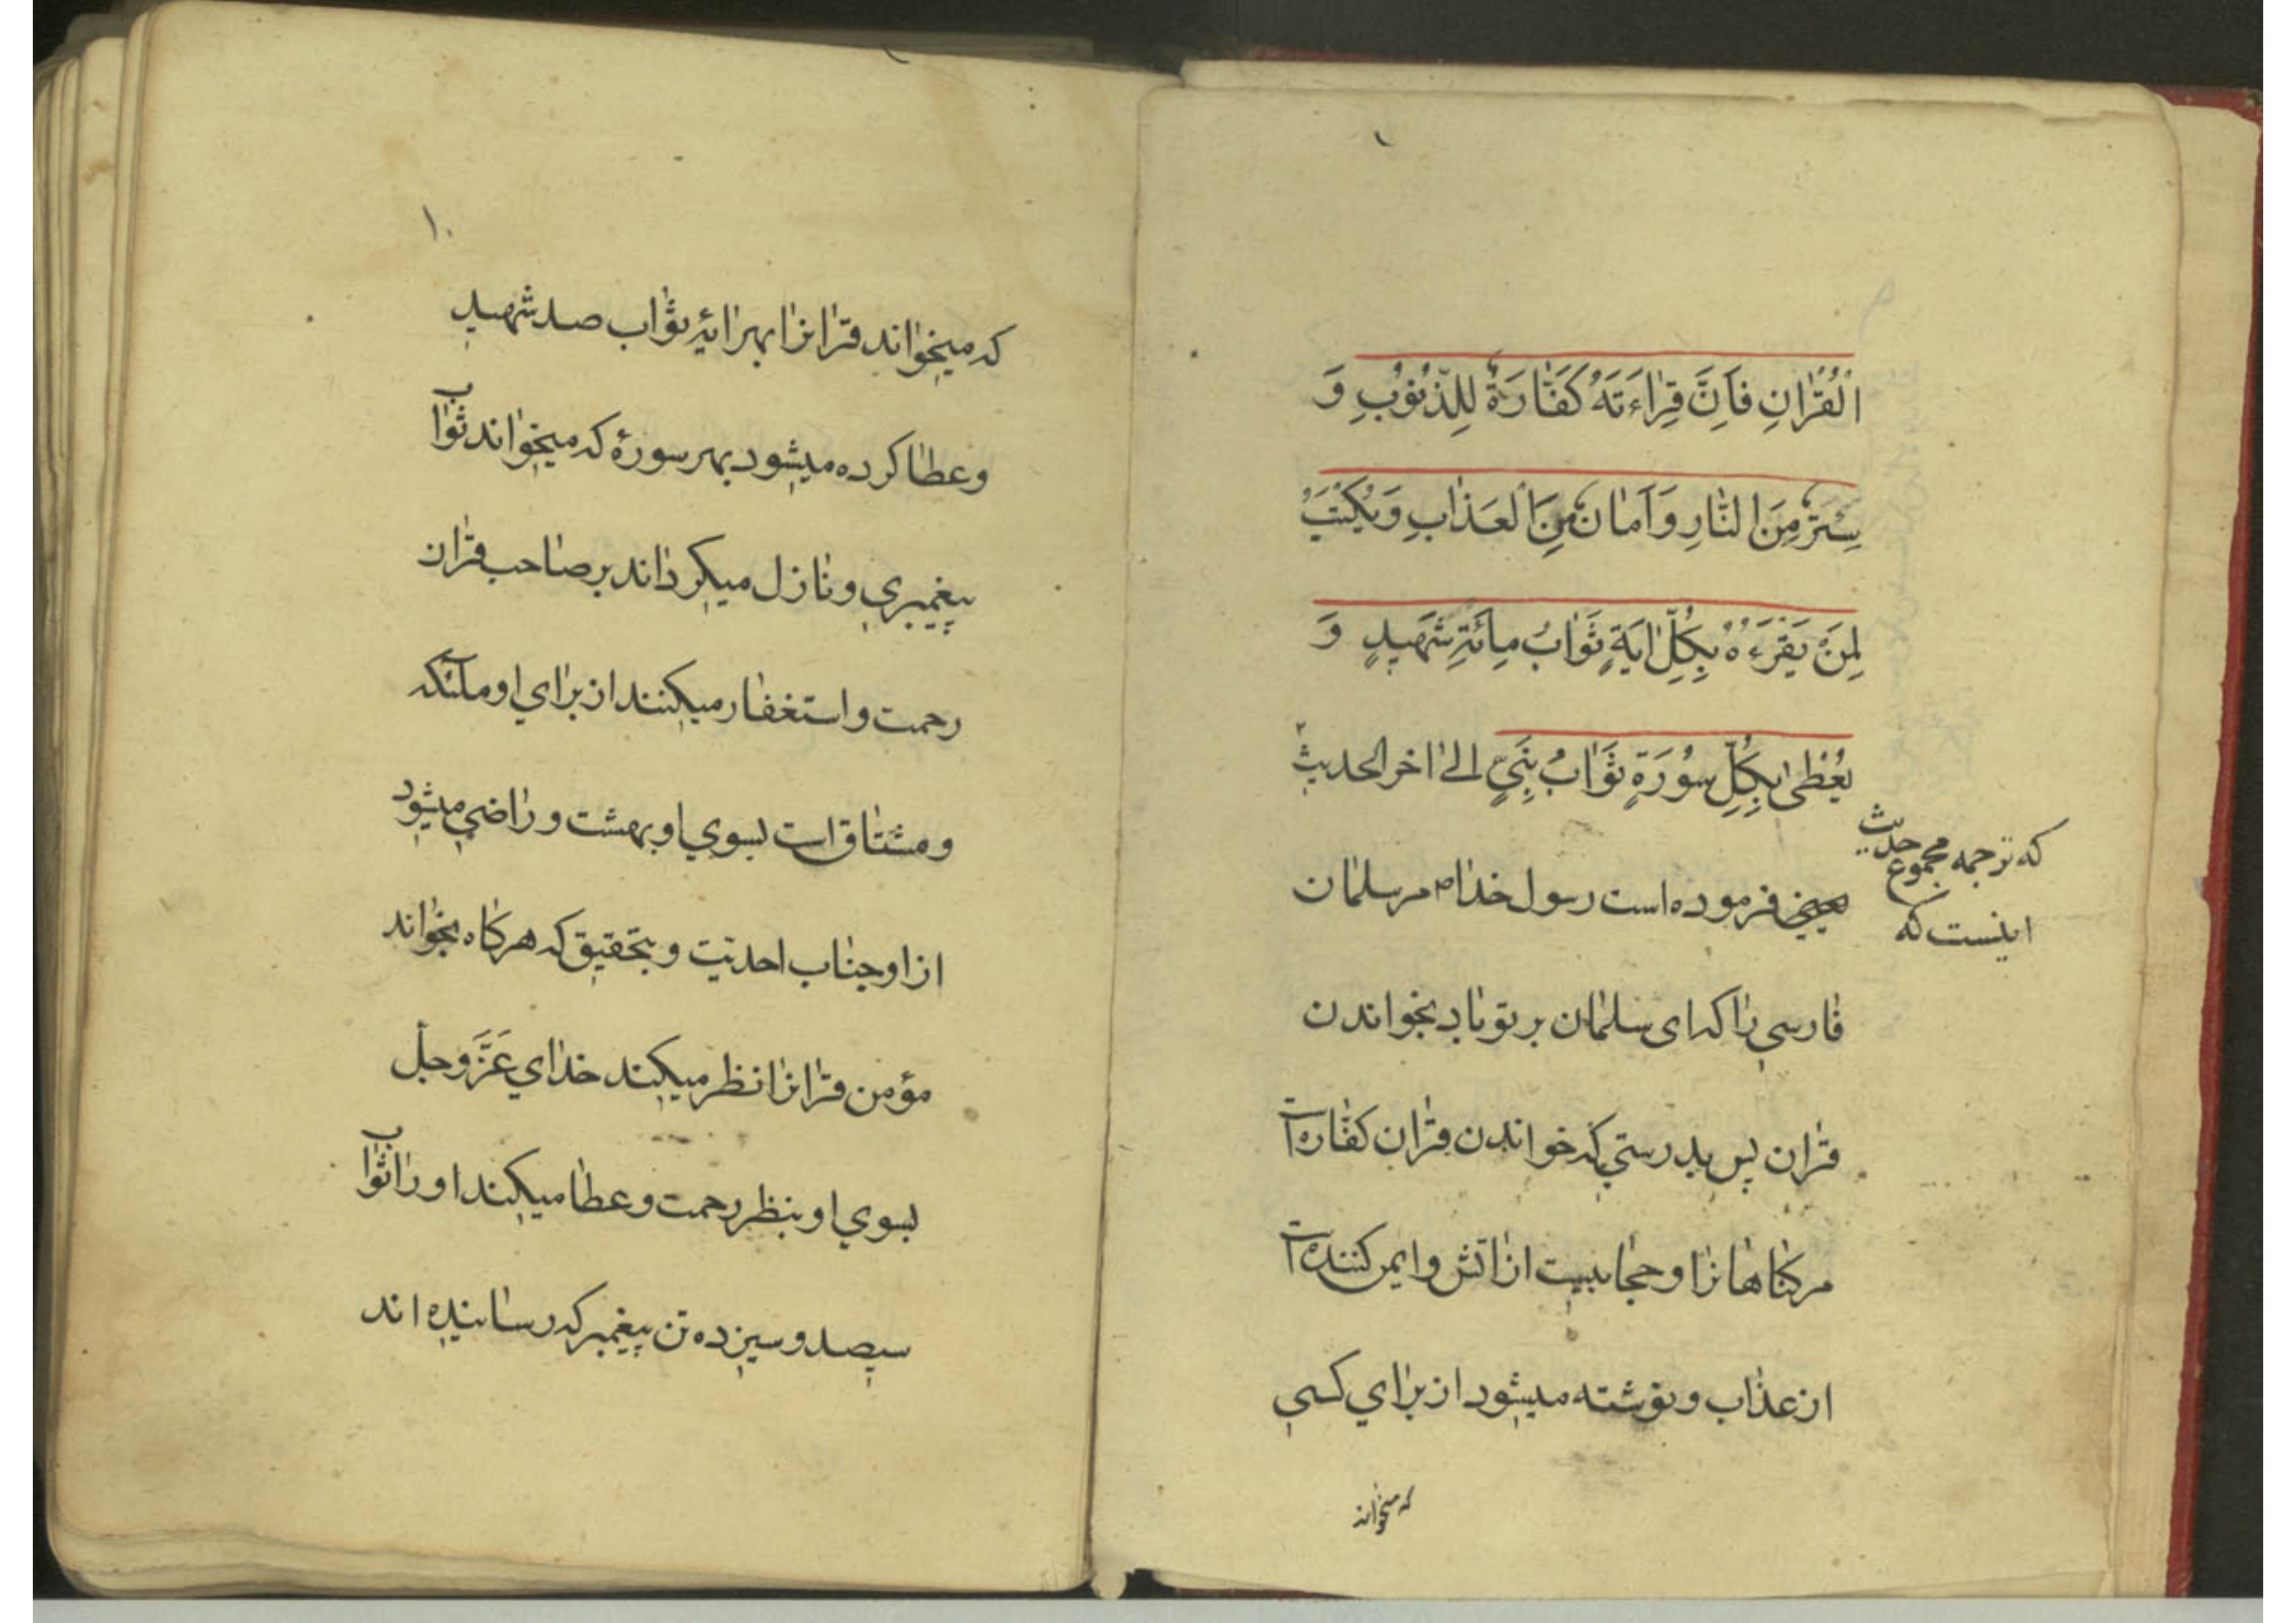 الْقُرٰانِ فَاِنَّ قِرٰاءَتَهُ كَفّٰارَةٌ لِلذُّنُوبِ وَ
سِتْرٌ مِنَ النّٰارِ وَ اَمٰانٌ مِنَ الْعَذٰابِ وَ يُكْتَبُ
لِمَنْ يَقْرَءُهُ بِكُلِّ اٰيَةٍ ثَوٰابُ مِائَةِ شَهيدٍ وَ
يُعْطىٰ بِكُلِّ سُورَةٍ ثَوٰابُ نَبِيٍّ الىٰ اخر الحديث
که ترجمه مجموع حدیث
اینست که
یعنی فرموده است رسول خدا ص مر سلمان
فارسی را که ای سلمان بر تو باد بخواندن
قران پس بدرستی که خواندن قران کفاره است
مر کناهانرا و حجابیست از اتش و ایمن کننده است
از عذاب و نوشته میشود از برای کسی
که میخواند
۱۰
که میخواند قرانرا بهر ایهٔ ثواب صد شهید
و عطا کرده میشود بهر سورهٔ که میخواند ثواب
پیغمبری و نازل میکرداند بر صاحب قران
رحمت و استغفار میکنند از برای او ملئکه
و مشتاق است بسوی او بهشت و راضی میشود
از او جناب احدیّت و بتحقیق که هرکاه بخواند
مؤمن قرانرا نظر میکند خدای عَزَّ و جلّ
بسوی او بنظر رحمت و عطا میکند او را ثواب
سیصد و سیزده تن پیغمبر که رسانیده اند